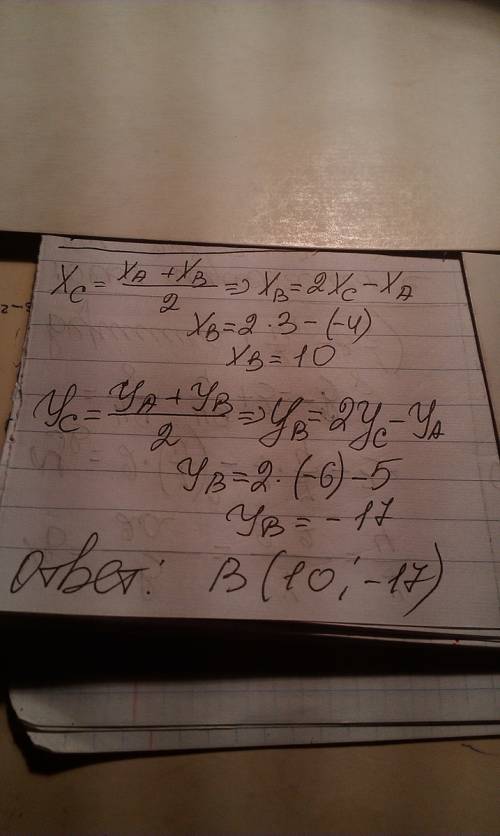 X_C = (X_A + X_B)/2 => X_B = 2X_C - X_A
X_B = 2 · 3 - (-4)
X_B = 10
Y_C = (Y_A + Y_B)/2 => Y_B = 2Y_C - Y_A
Y_B = 2 · (-6) - 5
Y_B = -17
Ответ: B (10; -17)